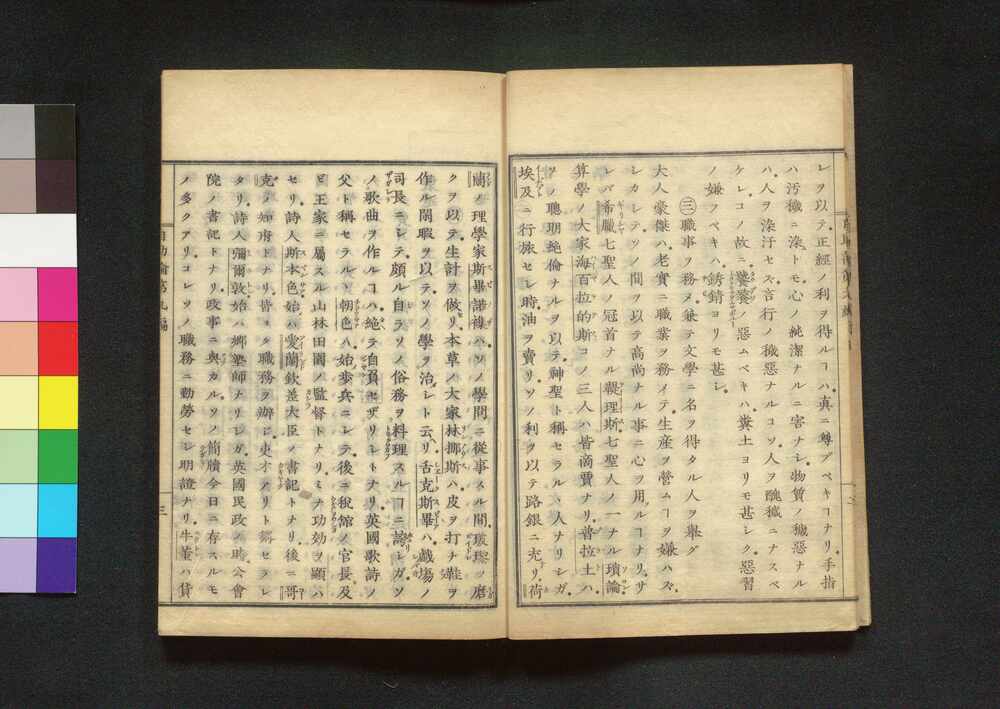 レヲ以テ正經ノ利ヲ得ルコハ真ニ尊ブベキコナリ手指
ハ汚穢ニ染トモ心ノ純潔ナルニ害ナシ物質ノ穢惡ナル
ハ人ヲ染汙セズ言行ノ穢惡ナルコソ人ヲ醜穢ニナスベ
ケレコノ故ニ饕餮ノ惡ムベキハ糞土ヨリモ甚シク惡習
ノ嫌フベキハ銹錆ヨリモ甚シ
㊂職事ヲ務メ兼テ文學ニ名ヲ得タル人ヲ舉グ
大人豪傑ハ老實ニ職業ヲ務メテ生産ヲ營ムコヲ嫌ハズ
シカシテソノ間ヲ以テ高尚ナル事ニ心ヲ用ルコナリサ
レバ希臘七聖人ノ冠首ナル禔理斯七聖人ノ一ナル瑣論
算學ノ大家海百拉的斯コノ三人ハ皆商賈ナリ普拉土ハ
ソノ聰明絶倫ナルヲ以テ神聖ト稱セラルヽ人ナリシガ
埃及ニ行旅セシ時油ヲ賣リソノ利ヲ以テ路銀ニ充リ荷
蘭ノ理學家斯畢諾褋ハソノ學問ニ從事スル間玻璨ヲ磨
クヲ以テ生計ヲ做リ本草ノ大家林娜斯ハ皮ヲ打ナ鞋ヲ
作ル閑暇ヲ以テソノ學ヲ治シト云リ舌克斯畢ハ戯場ノ
司長ニシテ頗ル自ラソノ俗務ヲ料理スルコニ誇シガソ
ノ歌曲ヲ作ルコハ絶テ自負セザリシトナリ英國歌詩ノ
父ト稱セラルヽ朝色ハ始歩兵ニシテ後ニ税館ノ官長及
ビ王家ニ屬スル山林田園ノ監督トナリミナ功効ヲ顯ハ
セリ詩人斯本色始ハ愛蘭欽差大臣ノ書記トナリ後ニ哥
克ノ知府トナリ皆ヨク職務ヲ辦ジ吏才アリト稱セラレ
タリ詩人彌爾敦始ハ郷塾師ナリシガ英國民政ノ時公會
院ノ書記トナリ政事ニ與カルソノ簡牘今日ニ存スルモ
ノ多クアリコレソノ職務ニ勤勞セシ明證ナリ牛董ハ貨
三